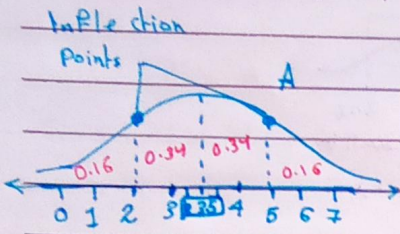 Inflection
Points
A
0.16 0.34 0.34 0.16
0 1 2 3 3.5 4 5 6 7